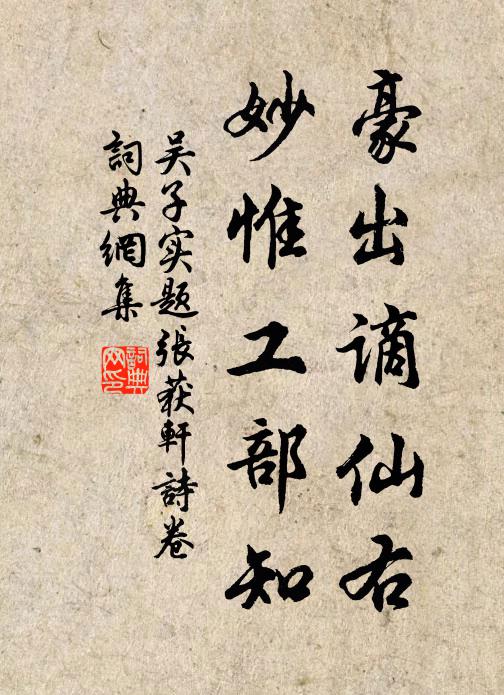 豪出谪仙右
妙惟工部知
吴子实题張荻軒詩卷
詞典網集
詞典网印